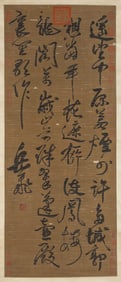 遙望中原荒煙外許多城郭
想當年花遮柳護鳳樓
龍閣萬歲山前珠翠遶蓬壺殿
裏笙歌作
岳飛